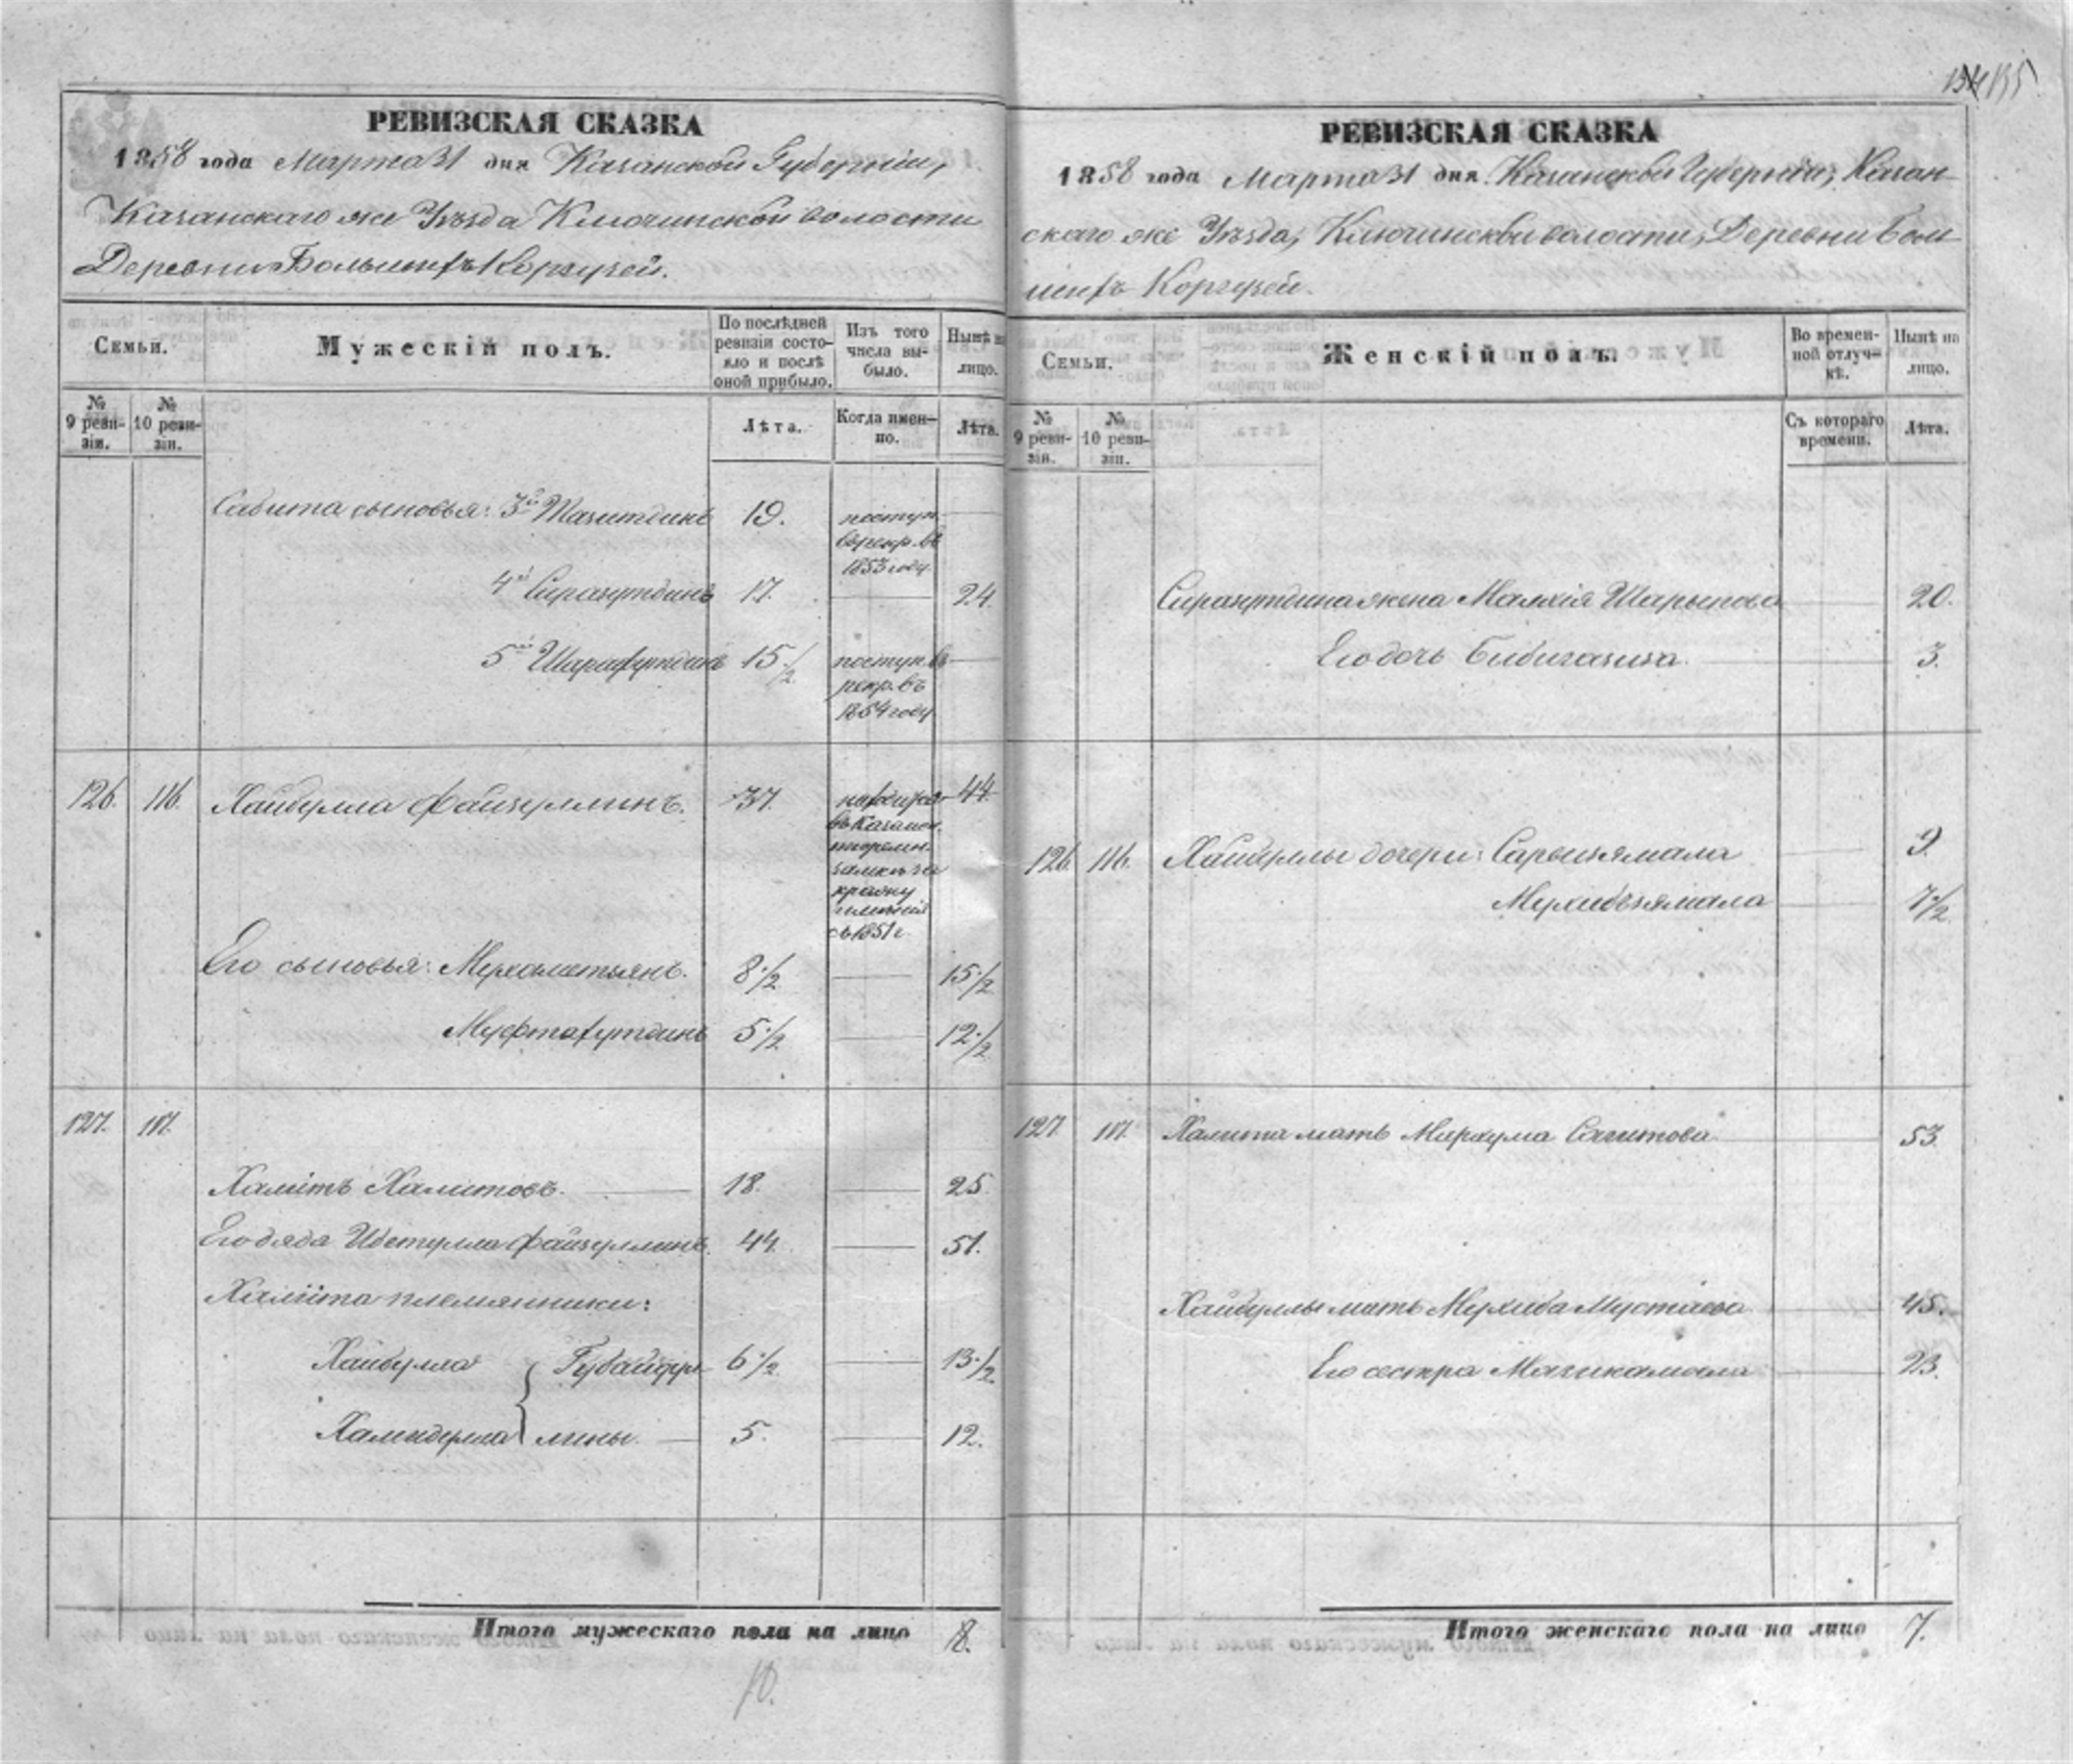 135
РЕВИЗСКАЯ СКАЗКА
1858 года Марта 31 дня Казанской Губерніи,
Казанскаго же Уѣзда Ключинской волости
Деревни Большихъ Коргузей.
Семьи.
Мужескій полъ.
По послѣдней ревизіи состояло и послѣ оной прибыло.
Изъ того числа выбыло.
Нынѣ на лицо.
№ 9 ревизіи.
№ 10 ревизіи.
Лѣта.
Когда именно.
Лѣта.
Сабита сыновья: 3й 19. поступ. в рекр. въ 1853 году
4й Сиразутдинъ 17. 24.
5й Шарафутдинъ 15 1/2 поступ. въ рекр. въ 1854 году
126. 116. Хайбулла Файзуллинъ. 37. 44.
въ Казанск.
тюремн.
замкѣ за
кражу
съ 1851 г.
Его сыновья: Мухаметьянъ. 8 1/2 15 1/2
Муфтахутдинъ 5 1/2 12 1/2
127. 117.
Хамитъ Халитовъ. 18. 25.
Его дядя Ибетулла Файзуллинъ. 44. 51.
Хамита племянники:
Хайбулла Губайдул- 6 1/2 13 1/2
Хамидулла лины. 5. 12.
Итого мужескаго пола на лицо 8.
10.
РЕВИЗСКАЯ СКАЗКА
1858 года Марта 31 дня Казанской Губерніи, Казан-
скаго же Уѣзда, Ключинской волости, Деревни Боль-
шихъ Коргузей.
Семьи.
Женскій полъ.
Во временной отлучкѣ.
Нынѣ на лицо.
№ 9 ревизіи.
№ 10 ревизіи.
Съ котораго времени.
Лѣта.
Сиразутдина жена Малхія Шарыпова 20.
Его дочь Бибигазиза. 3.
126. 116. Хайбуллы дочери: 9.
Мухибзямала 7 1/2
127. 117. Хамита мать Мархума Сагитова 53.
Хайбуллы мать Мухиба Мустаева 45.
Его сестра Магикамала 23.
Итого женскаго пола на лицо 7.